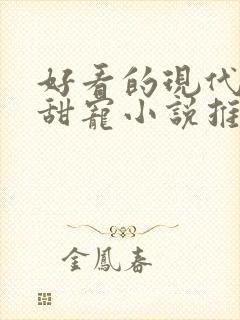 好看的現代
甜寵小說推
金鳳春